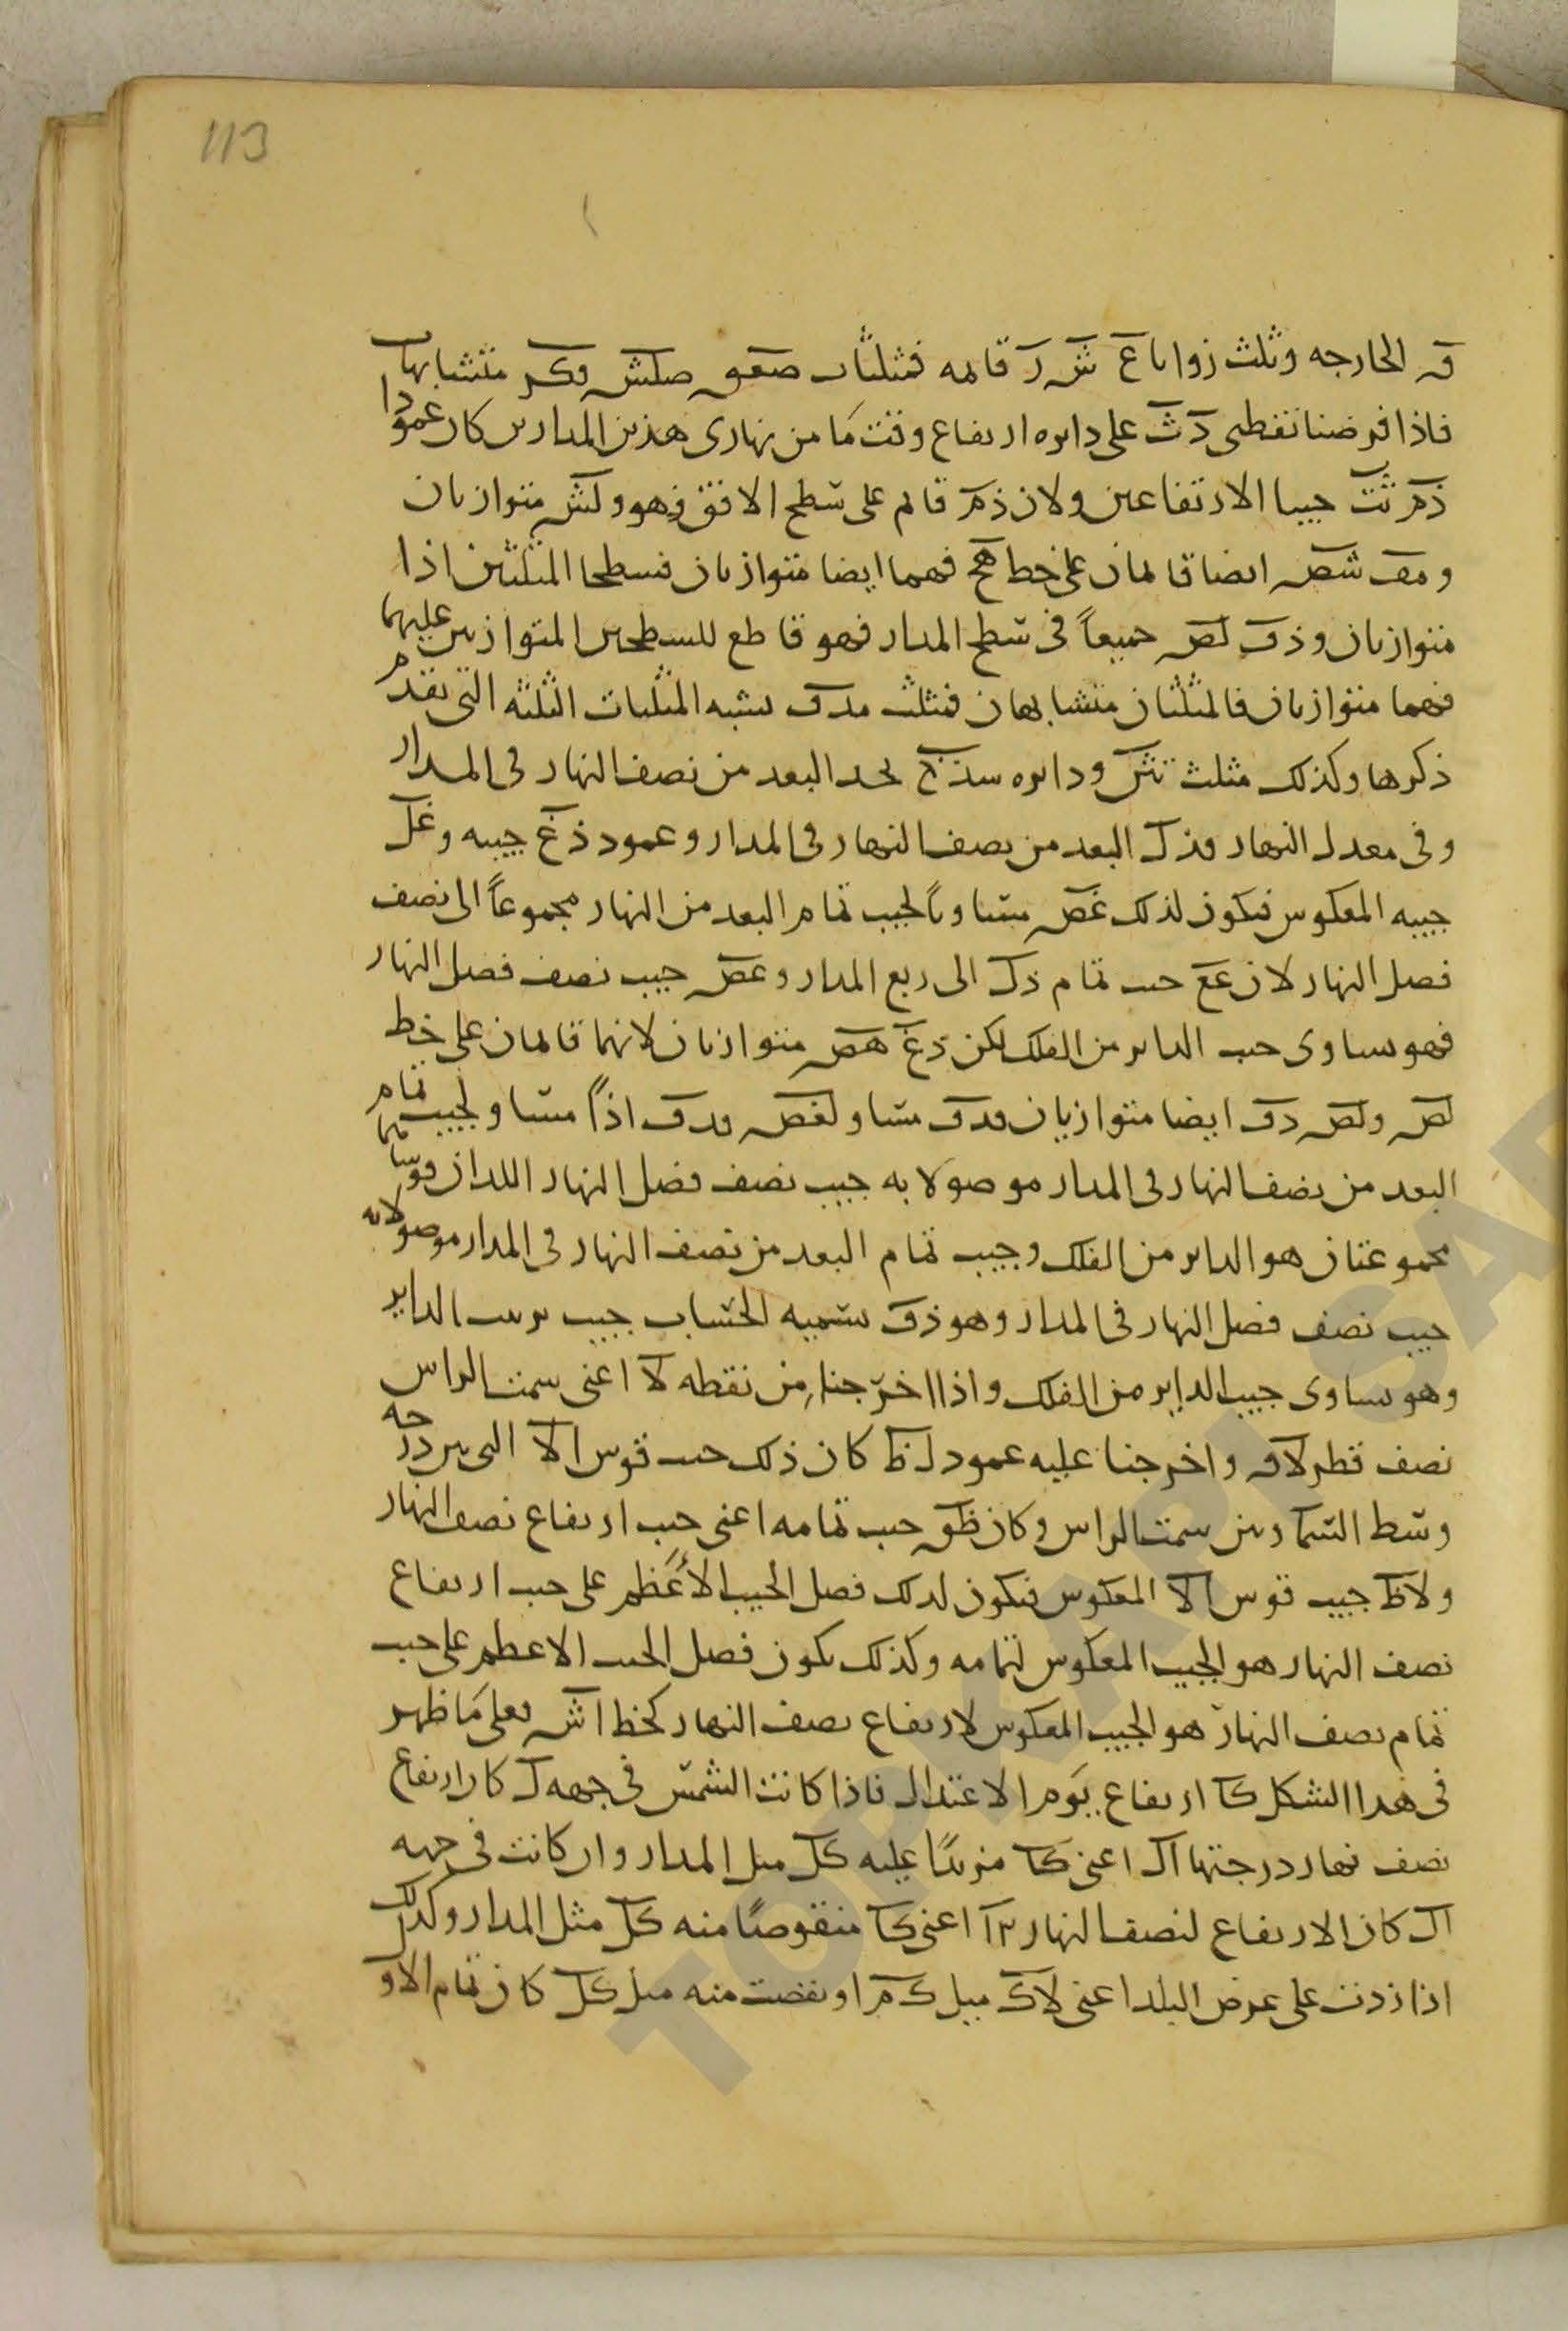 113
ق الخارجه وثلث زوايا ع ش ر قائمه فمثلثات صعق صلش فكر متشابهات
فاذا فرضنا نقطتى د ث على دايره ارتفاع وقت ما من نهارى هذين المدارين كان عمودا
ذم ثت جيبا الارتفاعين ولان ذم قائم على سطح الافق فهو ولش متوازيان
ومف شص ايضا قائمان على خط هج فهما ايضا متوازيان فسطحا المثلثين اذا
متوازيان وذف لص جميعاً فى سطح المدار فهو قاطع للسطحين المتوازيين عليهما
فهما متوازيان فالمثلثان متشابهان فمثلث مدف يشبه المثلثات الثلثه التى تقدم
ذكرها وكذلك مثلث تثر ودايره سذح تحد البعد من نصف النهار فى المدار
وفى معدل النهار فذل البعد من نصف النهار فى المدار وعمود ذغ جيبه وغل
جيبه المعكوس فيكون لذلك غص مساوياً لجيب تمام البعد من النهار مجموعاً الى نصف
فضل النهار لان غع جيب تمام ذل الى ربع المدار وعص جيب نصف فضل النهار
فهو يساوى جيب الداير من الفلك لكن ذغ هص متوازيان لانهما قائمان على خط
لص ولص دف ايضا متوازيان فدف مساو لغص فدف اذاً مساو لجيب تمام
البعد من نصف النهار فى المدار موصولا به جيب نصف فضل النهار اللذان قوساهما
مجموعتان هو الداير من الفلك وجيب تمام البعد من نصف النهار فى المدار موصولا به
جيب نصف فضل النهار فى المدار وهو ذف يسميه الحساب جيب ترتيب الداير
وهو يساوى جيب الداير من الفلك واذا اخرجنا من نقطه لا اعنى سمت الراس
نصف قطر لاق واخرجنا عليه عمود لظ كان ذلك جيب قوس الا التى بين درجه
وسط السما وبين سمت الراس وكان ظق جيب تمامه اعنى جيب ارتفاع نصف النهار
ولاظ جيب قوس الا المعكوس فيكون لذلك فضل الجيب الأعظم على جيب ارتفاع
نصف النهار هو الجيب المعكوس لتمامه وكذلك يكون فضل الجيب الاعظم على جيب
تمام نصف النهار هو الجيب المعكوس لارتفاع نصف النهار كخط اش فعلى ما ظهر
فى هذا الشكل كا ارتفاع يوم الاعتدال فاذا كانت الشمس فى جهه ل كان ارتفاع
نصف نهار درجتها ال اعنى كا مزيدًا عليه كل ميل المدار وان كانت فى جهه
ال كان الارتفاع لنصف النهار اعنى كا منقوصًا منه كل مثل المدار وكذلك
اذا زدت على عرض البلد اعنى لاك ميل كم او نقصت منه ميل كل كان تمام الاو